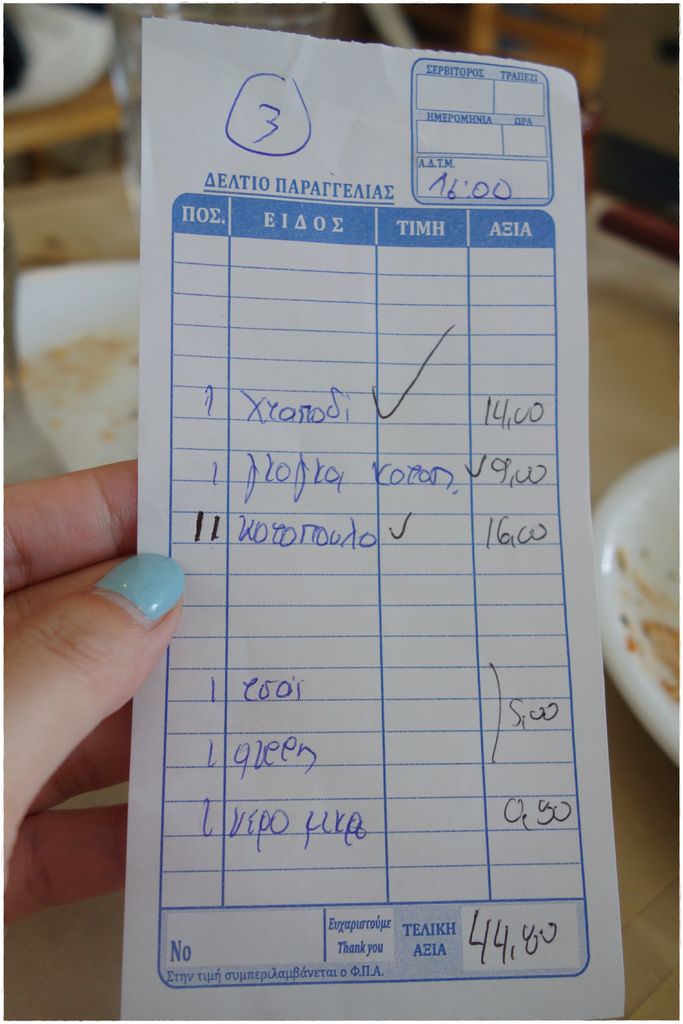 3
ΣΕΡΒΙΤΟΡΟΣ ΤΡΑΠΕΖΙ
ΗΜΕΡΟΜΗΝΙΑ ΩΡΑ
Α.Δ.Τ.Μ.
16:00
ΔΕΛΤΙΟ ΠΑΡΑΓΓΕΛΙΑΣ
ΠΟΣ. ΕΙΔΟΣ ΤΙΜΗ ΑΞΙΑ
1 χταποδι 14,00
1 γκογκα κοτοπ. 9,00
11 κοτοπουλο 16,00
1 τσαι
5,00
1 green
1 νερο μικρο
Ευχαριστούμε
Thank you
Νο
ΤΕΛΙΚΗ ΑΞΙΑ
Στην τιμή συμπεριλαμβάνεται ο Φ.Π.Α.